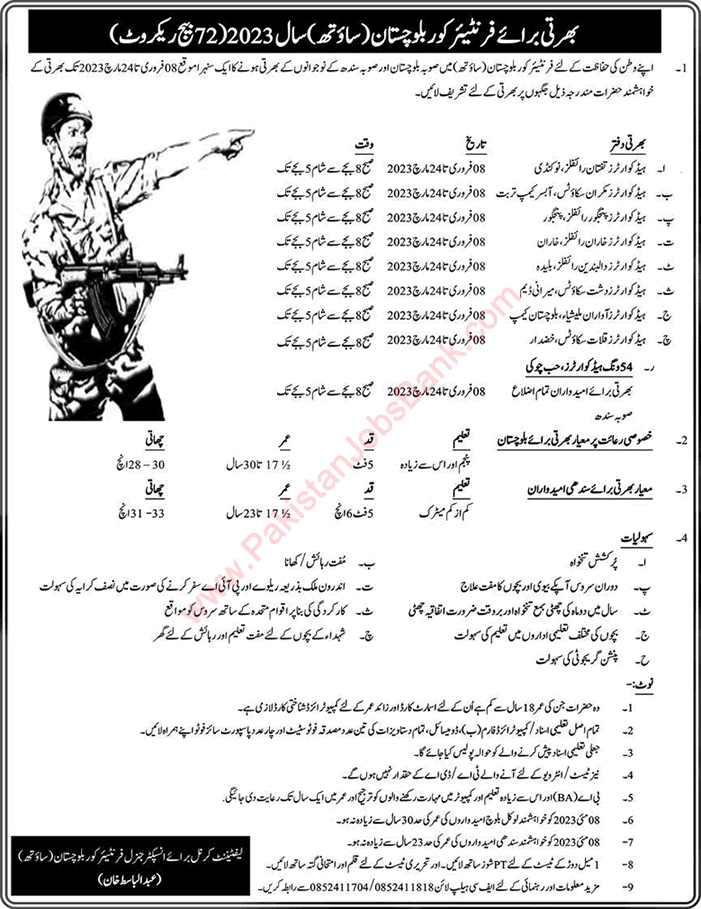 بھرتی برائے فرنٹیئر کور بلوچستان (ساؤتھ) سال 2023 (72 بیچ ریکروٹ)
1۔ اپنے وطن کی حفاظت کے لئے فرنٹیئر کور بلوچستان (ساؤتھ) میں صوبہ بلوچستان اور صوبہ سندھ کے نوجوانوں کے بھرتی ہونے کا ایک سنہرا موقع 08 فروری تا 24 مارچ 2023 تک بھرتی کے
خواہشمند حضرات مندرجہ ذیل جگہوں پر بھرتی کے لئے تشریف لائیں۔
بھرتی دفتر تاریخ وقت
ا۔ ہیڈ کوارٹرز تفتان رائفلز، نوکنڈی 08 فروری تا 24 مارچ 2023 صبح 8 بجے سے شام 5 بجے تک
ب۔ ہیڈ کوارٹرز مکران سکاؤٹس، آبسر کیمپ تربت 08 فروری تا 24 مارچ 2023 صبح 8 بجے سے شام 5 بجے تک
پ۔ ہیڈ کوارٹرز پنجگور رائفلز، پنجگور 08 فروری تا 24 مارچ 2023 صبح 8 بجے سے شام 5 بجے تک
ت۔ ہیڈ کوارٹرز خاران رائفلز، خاران 08 فروری تا 24 مارچ 2023 صبح 8 بجے سے شام 5 بجے تک
ٹ۔ ہیڈ کوارٹرز دالبندین رائفلز، بلیدہ 08 فروری تا 24 مارچ 2023 صبح 8 بجے سے شام 5 بجے تک
ث۔ ہیڈ کوارٹرز دشت سکاؤٹس، میرانی ڈیم 08 فروری تا 24 مارچ 2023 صبح 8 بجے سے شام 5 بجے تک
ج۔ ہیڈ کوارٹرز آواران ملیشیاء، بلوچستان کیمپ 08 فروری تا 24 مارچ 2023 صبح 8 بجے سے شام 5 بجے تک
چ۔ ہیڈ کوارٹرز قلات سکاؤٹس، خضدار 08 فروری تا 24 مارچ 2023 صبح 8 بجے سے شام 5 بجے تک
ر۔ 54 ونگ ہیڈ کوارٹرز، حب چوکی
بھرتی برائے امیدواران تمام اضلاع 08 فروری تا 24 مارچ 2023 صبح 8 بجے سے شام 5 بجے تک
صوبہ سندھ
2۔ خصوصی رعائت پر معیار بھرتی برائے بلوچستان تعلیم قد عمر چھاتی
پنجم اور اس سے زیادہ 5 فٹ 17 ½ تا 30 سال 28 – 30 انچ
3۔ معیار بھرتی برائے سندھی امیدواران تعلیم قد عمر چھاتی
کم از کم میٹرک 5 فٹ 6 انچ 17 ½ تا 23 سال 31 – 33 انچ
4۔ سہولیات
ا۔ پُرکشش تنخواہ ب۔ مفت رہائش / کھانا
پ۔ دوران سروس آپکے بیوی اور بچوں کا مفت علاج ت۔ اندرون ملک بذریعہ ریلوے اور پی آئی اے سفر کرنے کی صورت میں نصف کرایہ کی سہولت
ٹ۔ سال میں دو ماہ کی چھٹی بمع تنخواہ اور بروقت ضرورت اتفاقیہ چھٹی ث۔ کارکردگی کی بنا پر اقوام متحدہ کے ساتھ سروس کو مواقع
ج۔ بچوں کی مختلف تعلیمی اداروں میں تعلیم کی سہولت چ۔ شہداء کے بچوں کے لئے مفت تعلیم اور رہائش کے لئے گھر
ح۔ پنشن گریجوٹی کی سہولت
نوٹ:-
1۔ وہ حضرات جن کی عمر 18 سال سے کم ہے اُن کے لئے اسمارٹ کارڈ اور زائد عمر کے لئے کمپیوٹرائزڈ شناختی کارڈ لازمی ہے۔
2۔ تمام اصل تعلیمی اسناد / کمپیوٹرائزڈ فارم (ب)، ڈومیسائل، تمام دستاویزات کی تین عدد مصدقہ فوٹوسٹیٹ اور چار عدد پاسپورٹ سائز فوٹو اپنے ہمراہ لائیں۔
3۔ جعلی تعلیمی اسناد پیش کرنے والے کو حوالہ پولیس کیا جائے گا۔
4۔ نیز ٹیسٹ / انٹرویو کے لئے آنے والے ٹی اے / ڈی اے کے حقدار نہیں ہوں گے۔
5۔ بی اے (BA) اور اس سے زیادہ تعلیم اور کمپیوٹر میں مہارت رکھنے والوں کو ترجیح اور عمر میں ایک سال تک رعایت دی جائیگی۔
6۔ 08 مئی 2023 کو خواہشمند لوکل بلوچ امیدواروں کی عمر کی حد 30 سال سے زیادہ نہ ہو۔
7۔ 08 مئی 2023 کو خواہشمند سندھی امیدواروں کی عمر کی حد 23 سال سے زیادہ نہ ہو۔
8۔ 1 میل دوڑ کے ٹیسٹ کے لئے PT شوز ساتھ لائیں۔ اور تحریری ٹیسٹ کے لئے قلم اور امتحانی گتہ ساتھ لائیں۔
9۔ مزید معلومات اور رہنمائی کے لئے ایف سی ہیلپ لائن 0852411818 / 0852411704 سے رابطہ کریں۔
لیفٹیننٹ کرنل برائے انسپکٹر جنرل فرنٹیئر کور بلوچستان (ساؤتھ)
(عبدالباسط خان)
www.PakistanJobsBank.com